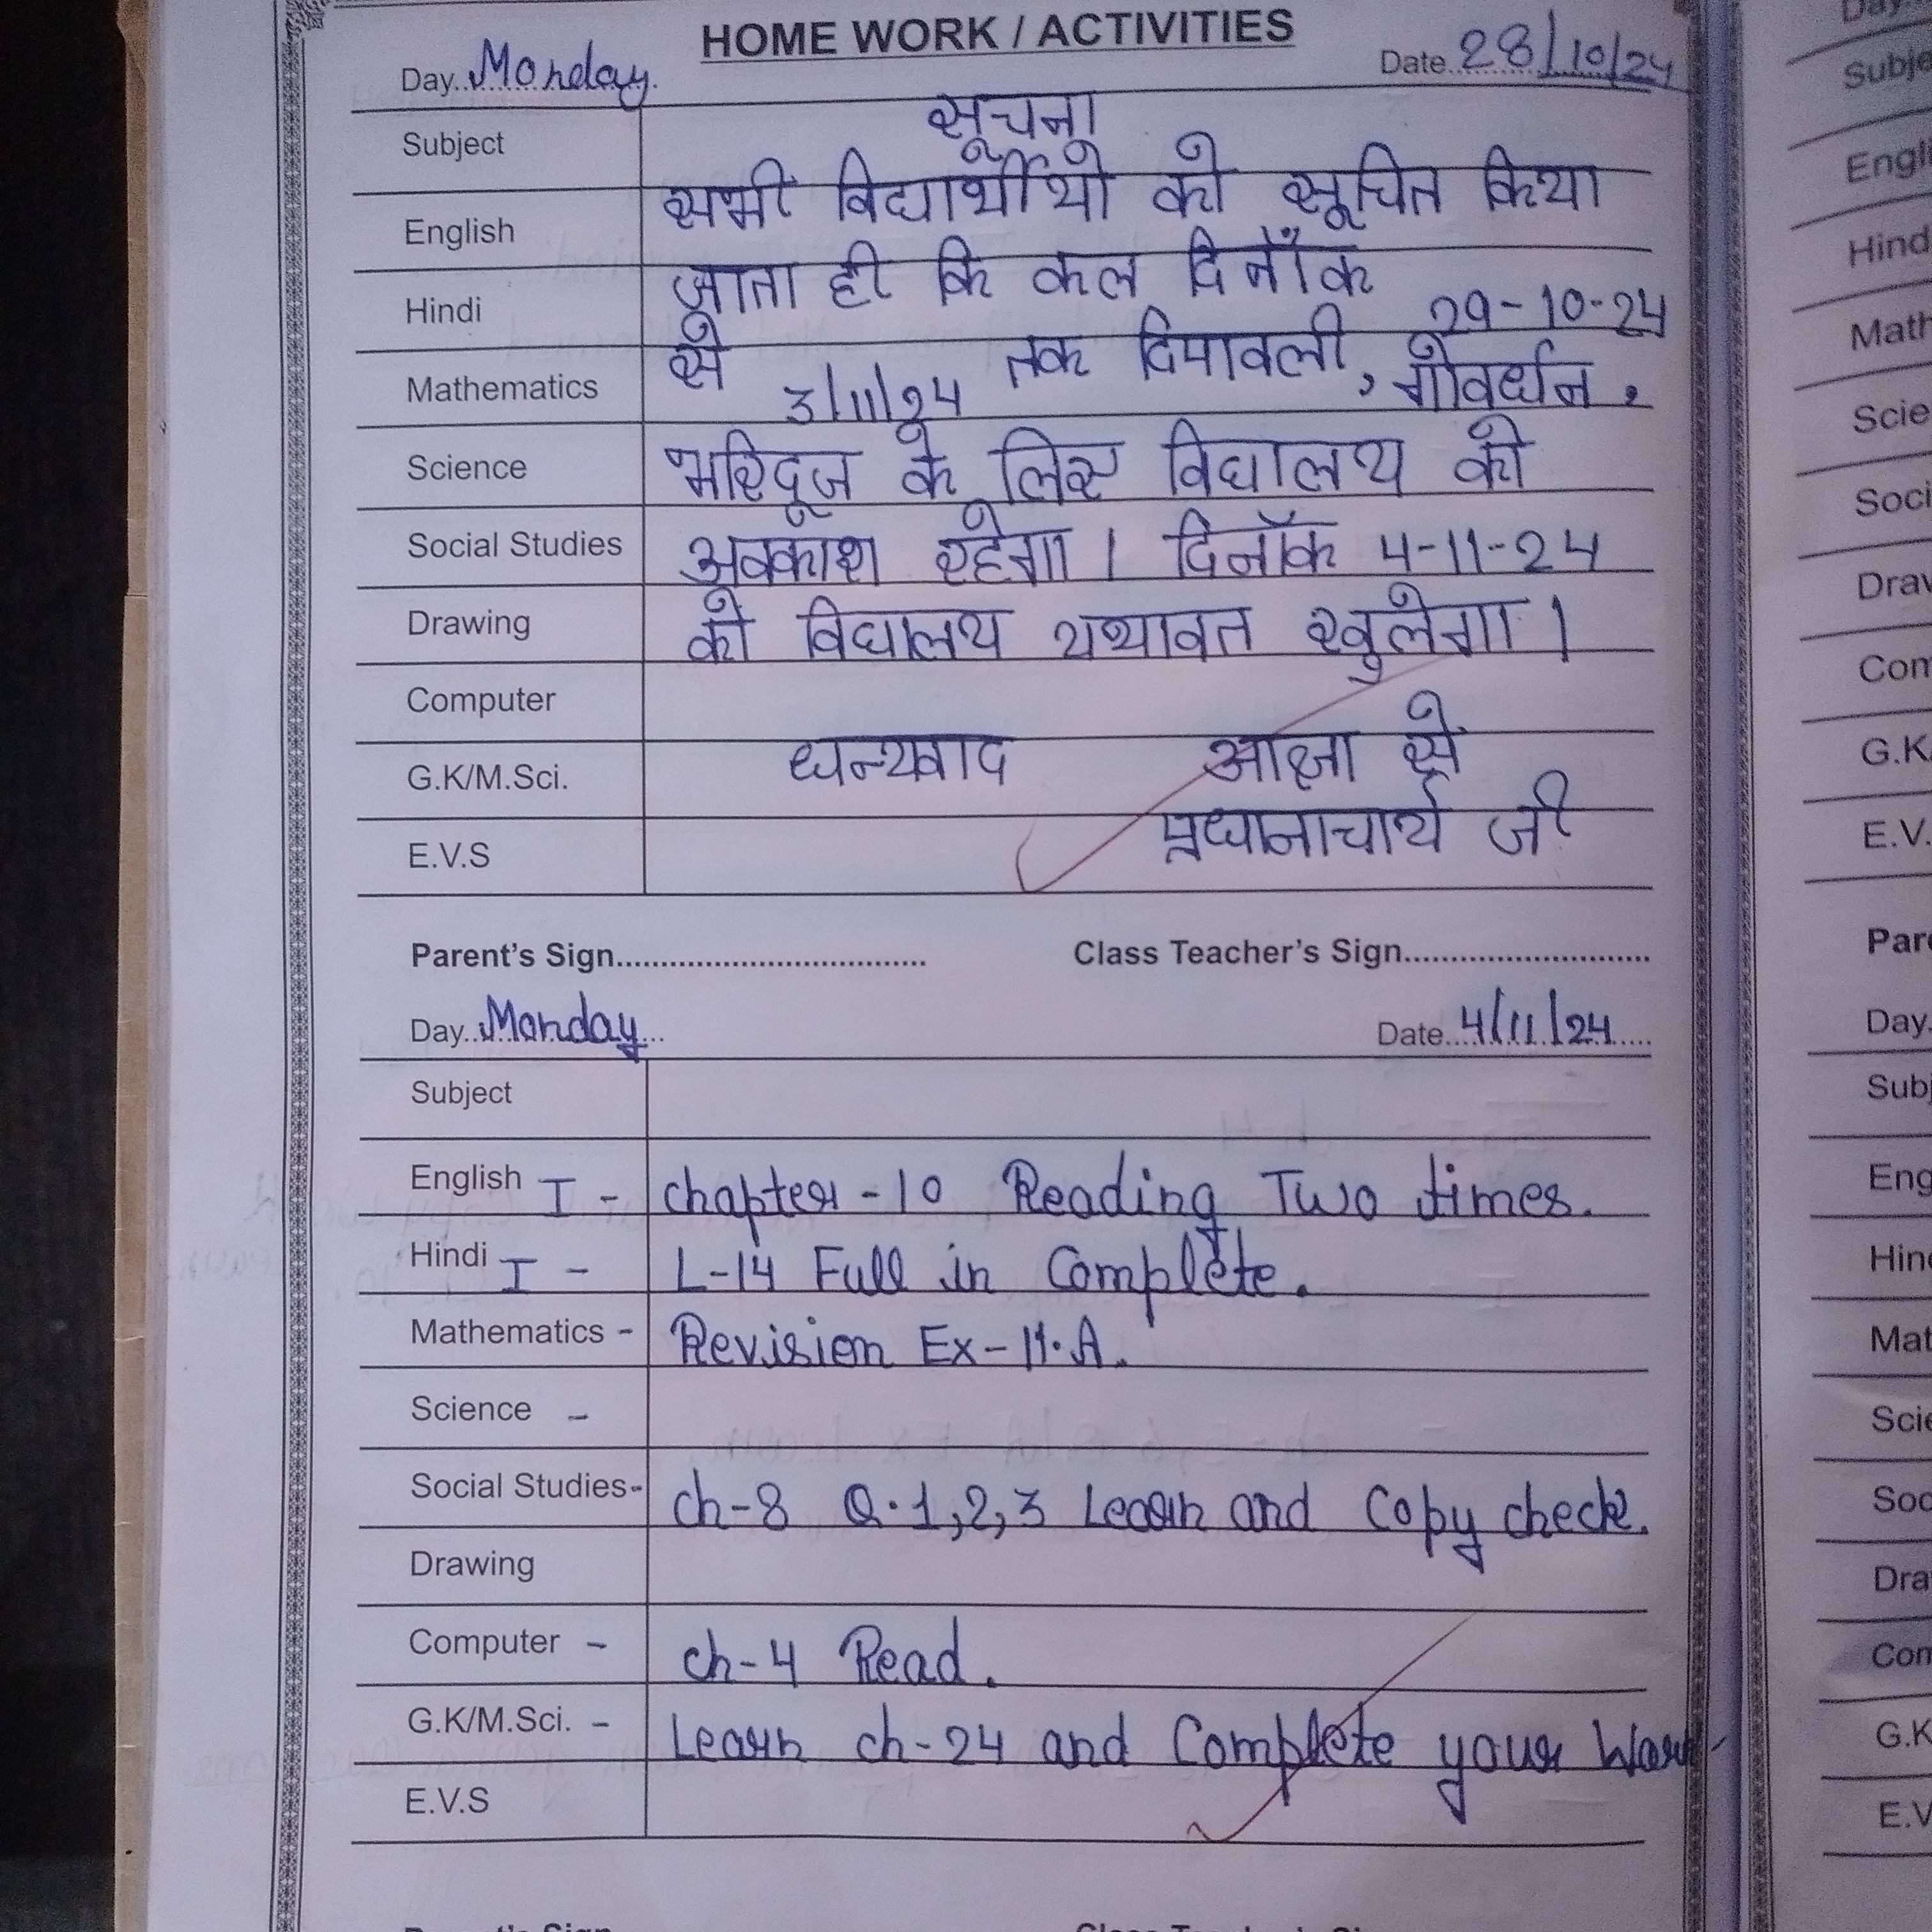 HOME WORK / ACTIVITIES
Day..Monday. Date..28/10/24
Subject सूचना
सभी विद्यार्थीयो को सूचित किया
English
जाता ही कि कल दिनाँक
Hindi 29-10-24
से 3/11/24 तक दिपावली, गोवर्धन,
Mathematics
Science भाईदूज के लिए विद्यालय को
Social Studies अवकाश रहेगा। दिनाँक 4-11-24
Drawing को विद्यालय यथावत खुलेगा।
Computer
G.K/M.Sci. धन्यवाद आज्ञा से
E.V.S प्रधानाचार्य जी
Parent's Sign................................... Class Teacher's Sign............................
Day..Monday... Date...4/11/24.....
Subject
English I - chapter -10 Reading Two times.
Hindi I - L-14 Full in Complete.
Mathematics - Revision Ex-11.A.
Science -
Social Studies- ch-8 Q.1,2,3 Learn and Copy check.
Drawing
Computer - ch-4 Read.
G.K/M.Sci. - Learn ch-24 and Complete your Work
E.V.S
Subje
Engli
Hind
Math
Scie
Soci
Draw
Com
G.K
E.V.
Pare
Day.
Subj
Eng
Hind
Mat
Scie
Soc
Dra
Com
G.K
E.V